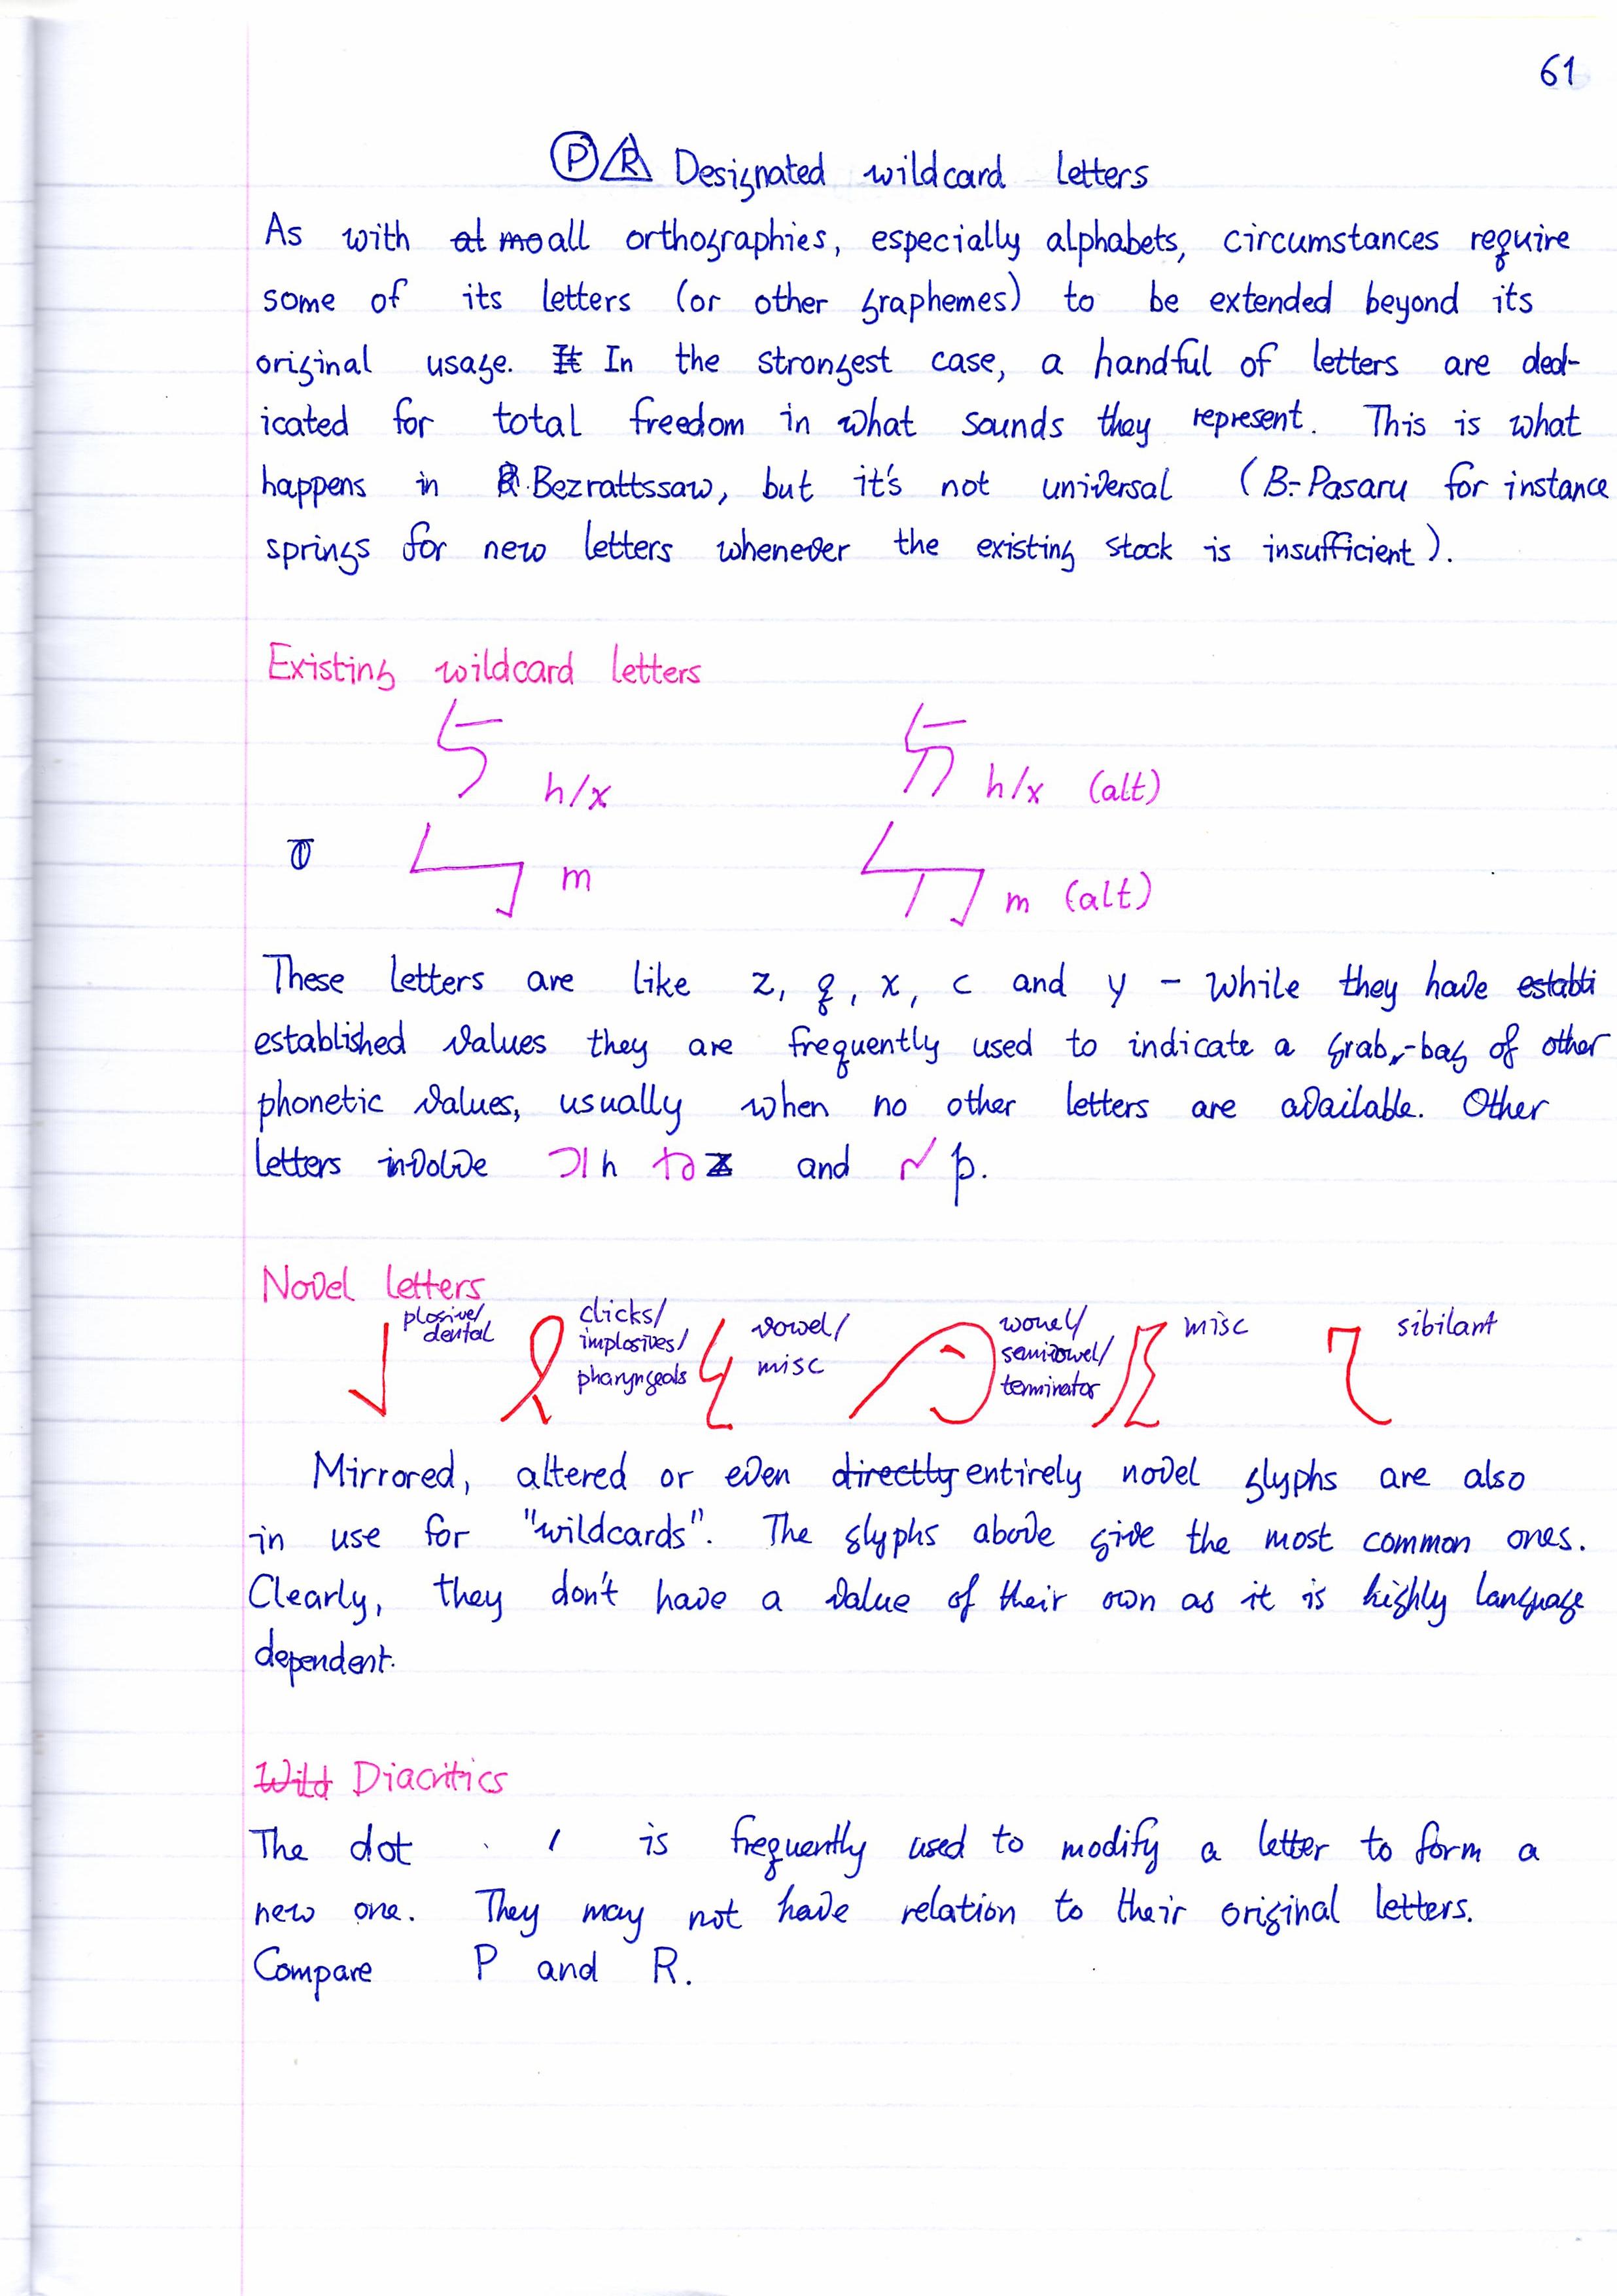 61
P R Designated wildcard letters
As with at mo all orthographies, especially alphabets, circumstances require
some of its letters (or other graphemes) to be extended beyond its
original usage. It In the strongest case, a handful of letters are ded-
icated for total freedom in what sounds they represent. This is what
happens in Bezrattssaw, but it's not universal (B.-Pasaru for instance
springs for new letters whenever the existing stock is insufficient).
Existing wildcard letters
h/x h/x (alt)
m m (alt)
These letters are like z, q, x, c and y - while they have establi
established values they are frequently used to indicate a grab-bag of other
phonetic values, usually when no other letters are available. Other
letters involve h z and p.
Novel letters
plosive/ dental clicks/ implosives/ pharyngeals vowel/ misc wovel/ semivowel/ terminator misc sibilant
Mirrored, altered or even directly entirely novel glyphs are also
in use for "wildcards". The glyphs above give the most common ones.
Clearly, they don't have a value of their own as it is highly language
dependent.
Wild Diacritics
The dot is frequently used to modify a letter to form a
new one. They may not have relation to their original letters.
Compare P and R.